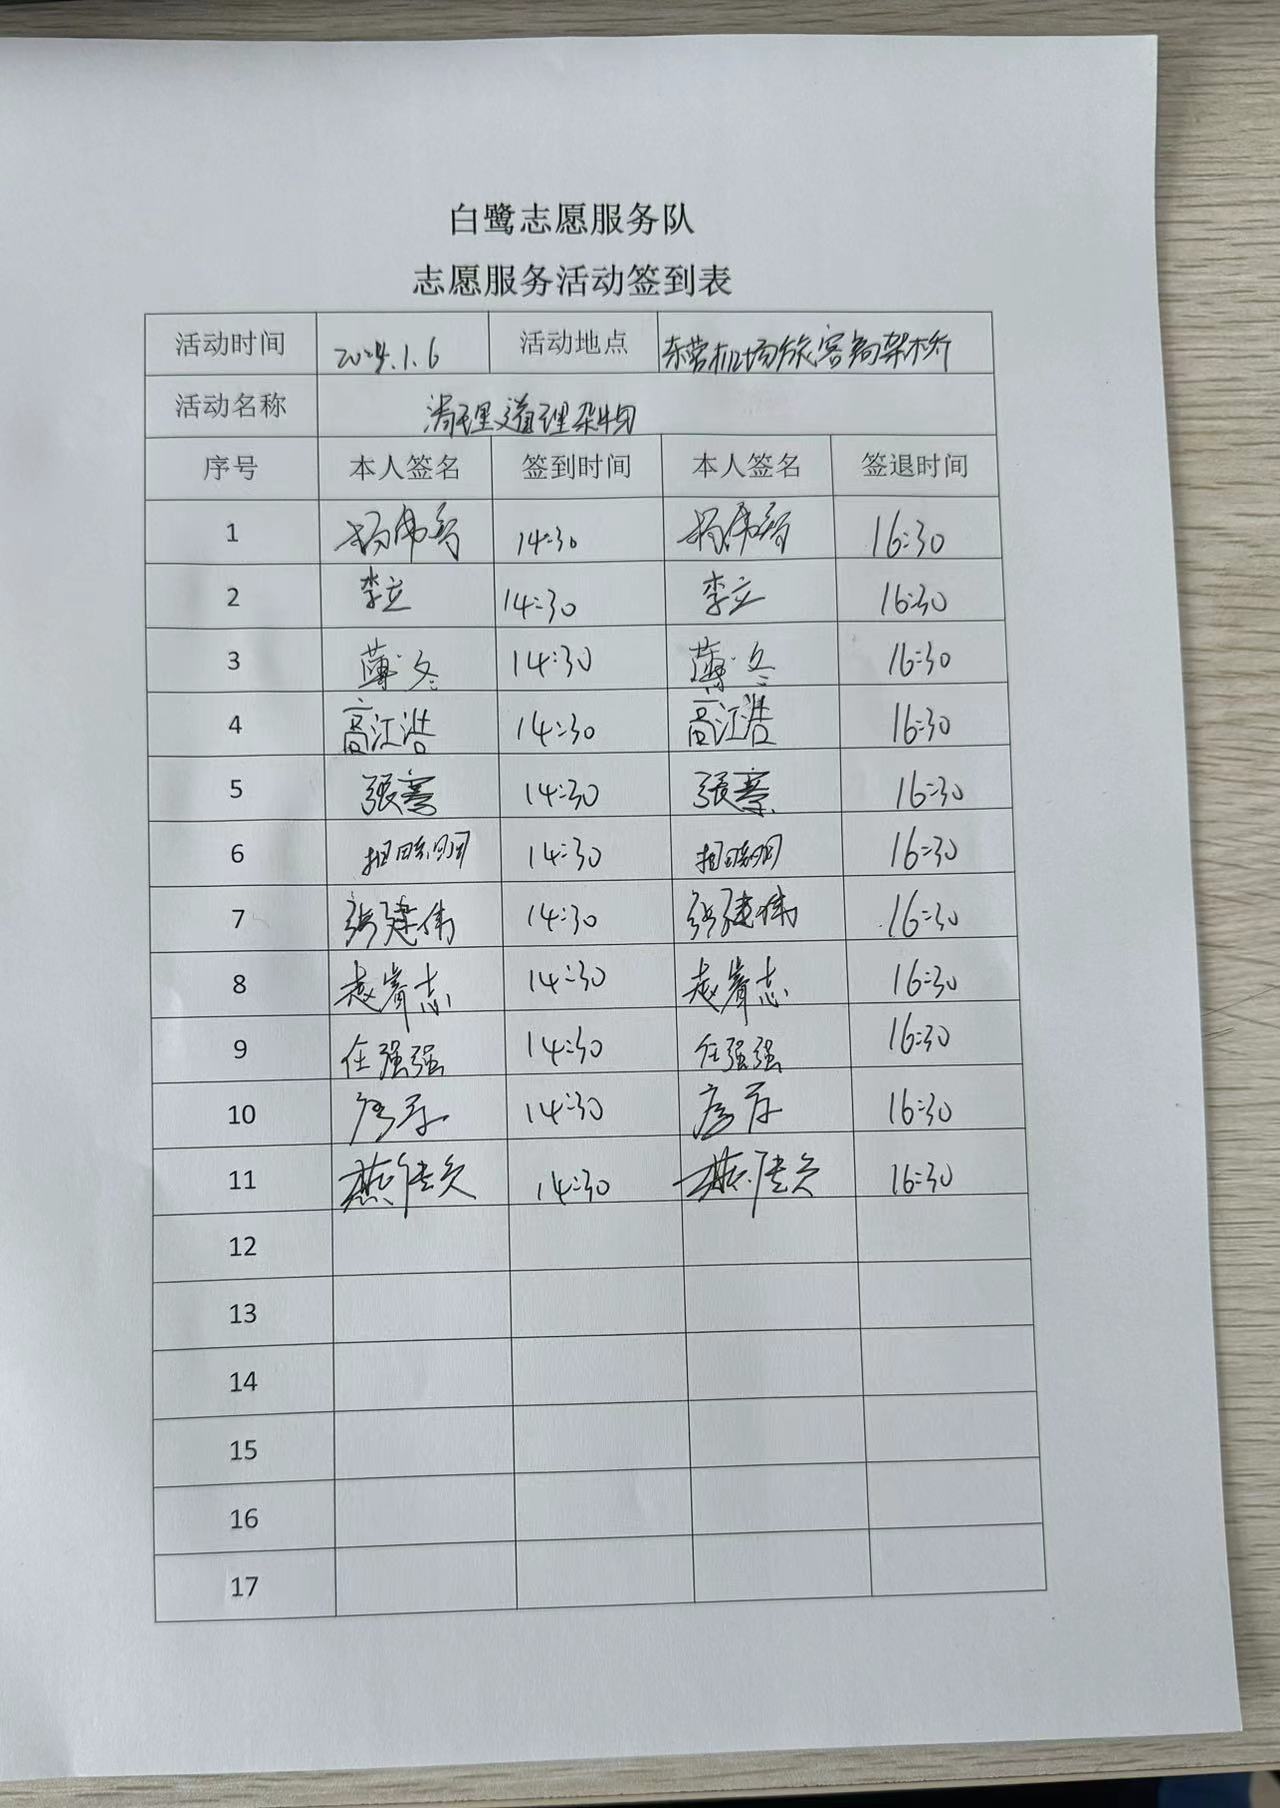 白鹭志愿服务队
志愿服务活动签到表
活动时间 2024.1.6 活动地点 东营机场旅客高架桥
活动名称 清理道理杂物
序号 本人签名 签到时间 本人签名 签退时间
1 14:30 16:30
2 李立 14:30 李立 16:30
3 薄冬 14:30 薄冬 16:30
4 高江浩 14:30 高江浩 16:30
5 14:30 16:30
6 14:30 16:30
7 张建伟 14:30 张建伟 16:30
8 14:30 16:30
9 任强强 14:30 任强强 16:30
10 14:30 16:30
11 14:30 16:30
12
13
14
15
16
17